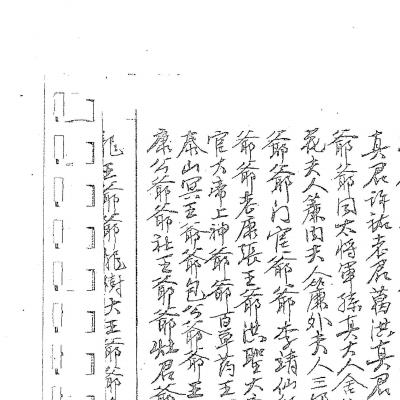 真君許祜老君葛洪真君
爺爺周大將軍孫真大人
花夫人簾內夫人簾外夫人三
爺爺门官爺爺李靖仙
爺爺老康張王爺洪聖大
官大帝上神爺爺百草药王
泰山冥王爺爺包公爺爺王
康公爺爺社王爺爺灶君爺
龍王爺爺龍樹大王爺爺